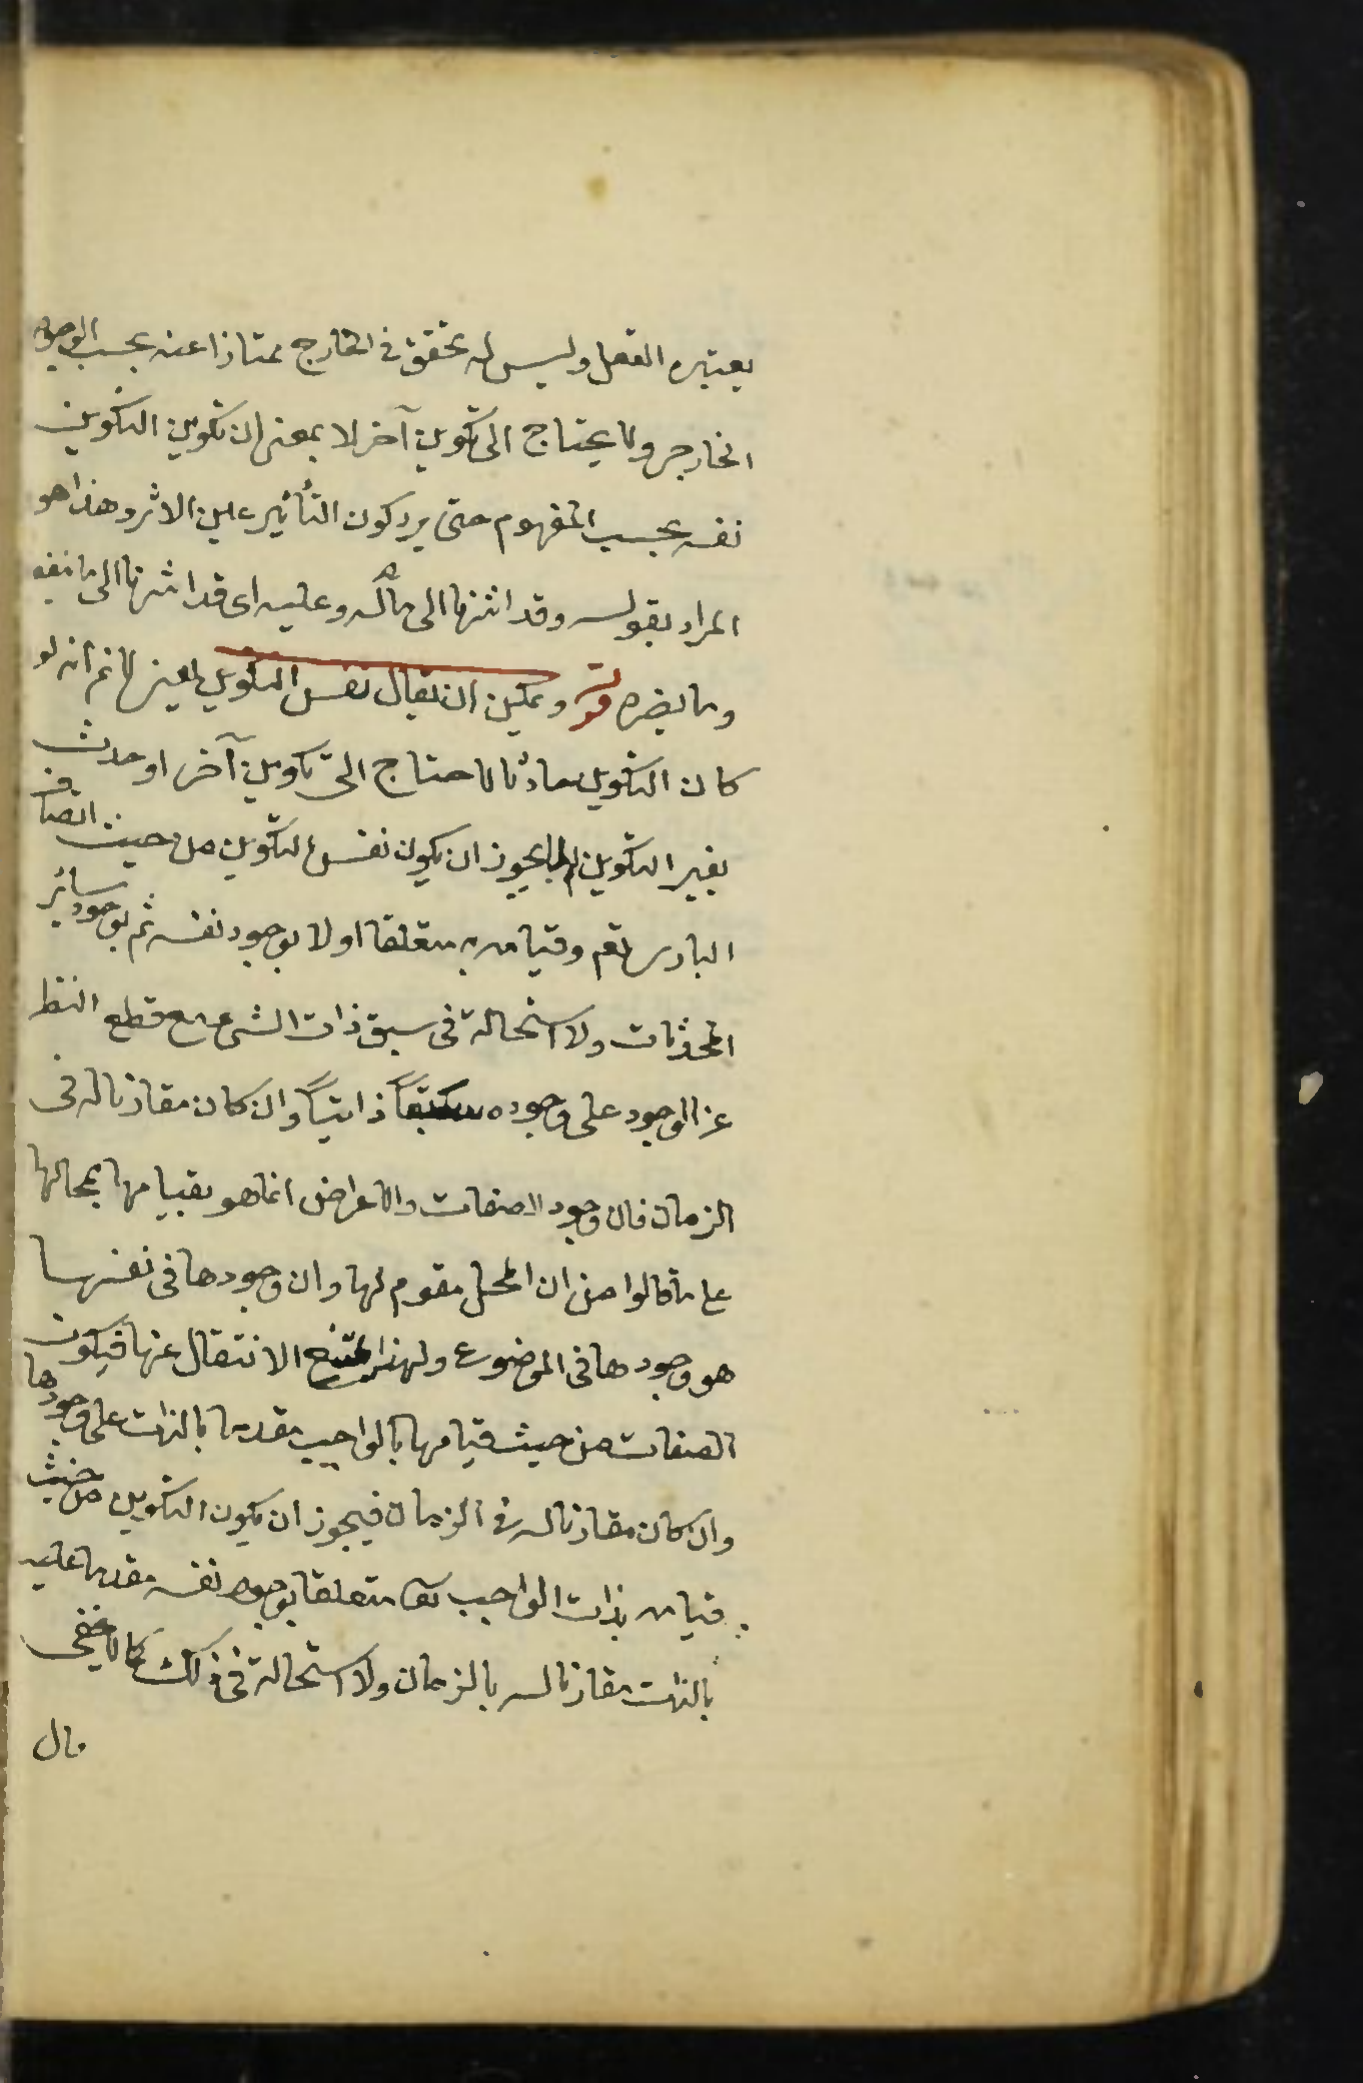 يعتبره العقل وليس له تحقق في الخارج ممتازا عنه بحسب الوجود
الخارجى ولا يحتاج الى تكوين آخر لا بمعنى ان تكوين التكوين
نفسه بحسب المفهوم حتى يرد كون التأثير عين الاثر وهذا هو
المراد بقوله وقد اشرنا الى ماله وعليه اى قد اشرنا الى ما ينفعه
وما يضره قوله ويمكن ان يقال نفس التكوين يعنى لا نم انه لو
كان التكوين حادثا لاحتاج الى تكوين آخر او حدث
بغير التكوين لم لا يجوز ان يكون نفس التكوين من حيث اتصاف
البارى تعم وقيامه به متعلقا اولا بوجود نفسه ثم بوجود سائر
المحدثات ولا استحالة فى سبق ذات الشئ مع قطع النظر
عن الوجود على وجوده سبقاً ذاتياً وان كان مقارنا له فى
الزمان فان وجود الصفات والاعراض انما هو بقيامها بمحالها
على ما قالوا من ان المحل مقوم لها وان وجودها فى نفسها
هو وجودها فى الموضوع ولهذا يمتنع الانتقال عنها فيكون
الصفات من حيث قيامها بالواجب مقدما بالذات على وجودها
وان كان مقارنا له فى الزمان فيجوز ان يكون التكوين من حيث
قيامه بذات الواجب تعا متعلقا بوجود نفسه مقدما عليه
بالذات مقارنا له بالزمان ولا استحالة فى ذلك كما لا يخفى
قال